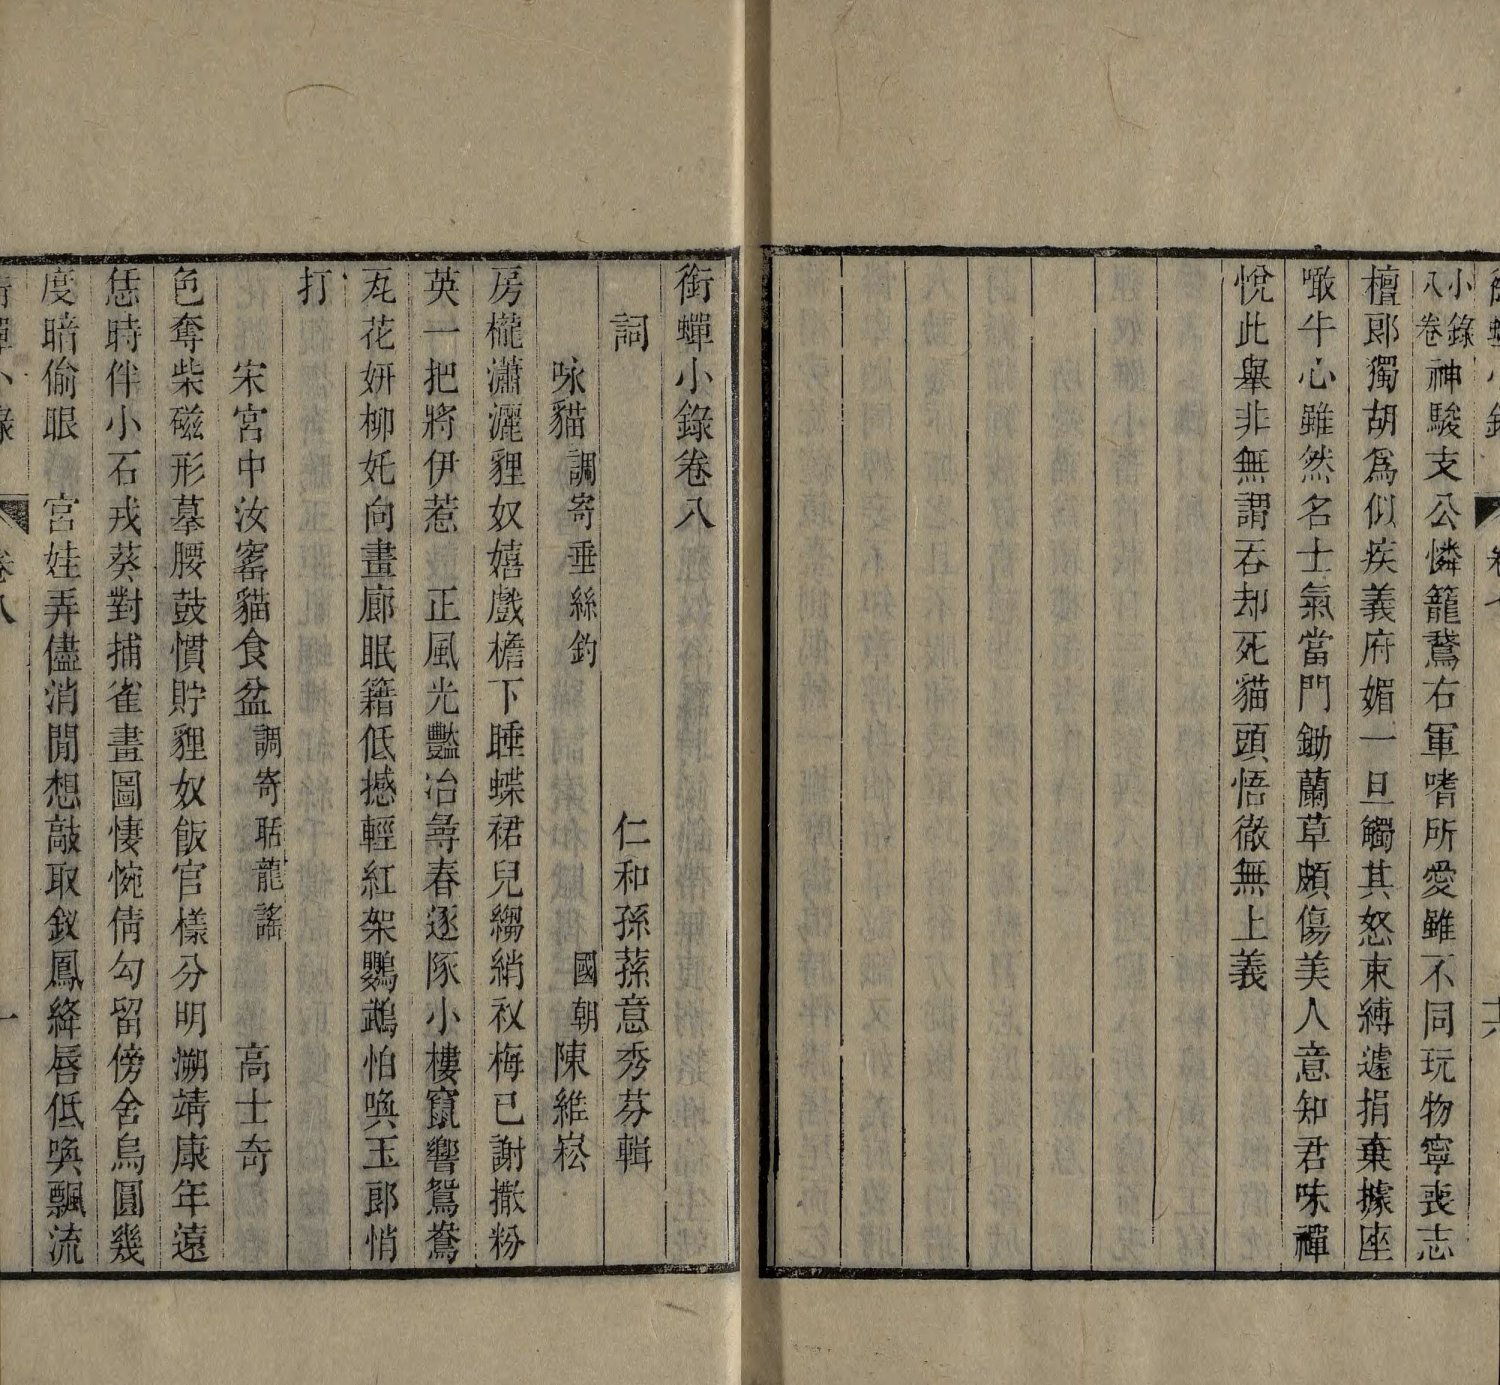 小錄
八卷神駿支公憐籠鵞右軍嗜所愛雖不同玩物寧喪志
檀郎獨胡爲似疾義府媚一旦觸其怒束縛遽捐棄據座
噉牛心雖然名士氣當門鋤蘭草頗傷美人意知君味禪
悅此舉非無謂吞却死貓頭悟徹無上義
銜蟬小錄卷八
詞　仁和孫蓀意秀芬輯
咏貓調寄垂絲釣　國朝陳維崧
房櫳瀟灑貍奴嬉戲檐下睡蝶裙兒縐綃衩梅已謝撒粉
英一把將伊惹　正風光豔冶尋春逐隊小樓竄響鴛鴦
瓦花妍柳奼向畫廊眠籍低撼輕紅架鸚鵡怕喚玉郎悄
打
宋宮中汝窰貓食盆調寄聒龍謠　高士奇
色奪柴磁形摹腰鼓慣貯貍奴飯官樣分明溯靖康年遠
恁時伴小石戎葵對捕雀畫圖悽惋倩勾留傍舍烏圓幾
度暗偷眼　宮娃弄儘消閒想敲取釵鳳絳唇低喚飄流